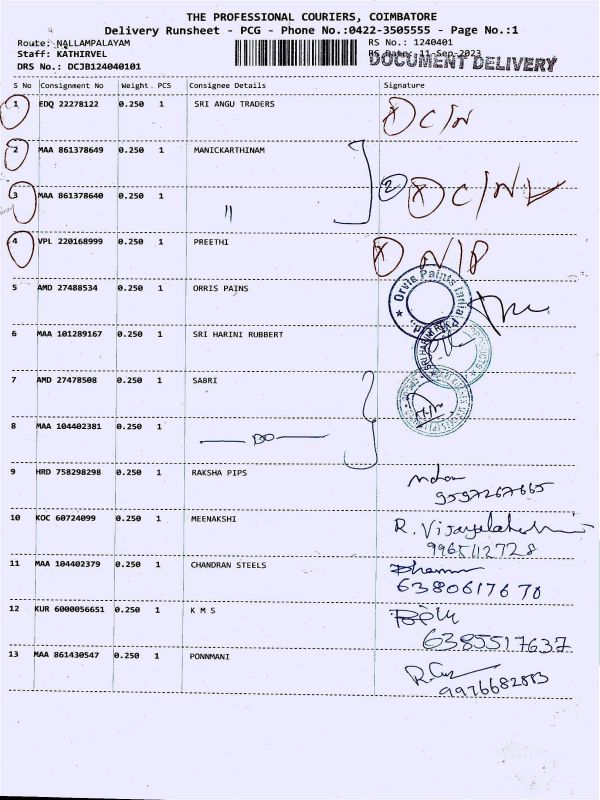 THE PROFESSIONAL COURIERS, COIMBATORE
Delivery Runsheet - PCG - Phone No.:0422-3505555 - Page No.:1
Route: NALLAMPALAYAM RS No.: 1240401
Staff: KATHIRVEL RS Date: 11-Sep-2023
DRS No.: DCJB124040101 DOCUMENT DELIVERY
S No Consignment No Weight. PCS Consignee Details Signature
1 EDQ 22278122 0.250 1 SRI ANGU TRADERS X C/N
2 MAA 861378649 0.250 1 MANICKARTHINAM
3 MAA 861378640 0.250 1 〃 2 X C/N
4 VPL 220168999 0.250 1 PREETHI X N/P
5 AMD 27488534 0.250 1 ORRIS PAINS Orvia Paints India
6 MAA 101289167 0.250 1 SRI HARINI RUBBERT
7 AMD 27478508 0.250 1 SABRI
8 MAA 104402381 0.250 1 DO
9 HRD 758298298 0.250 1 RAKSHA PIPS
9597267665
10 KOC 60724099 0.250 1 MEENAKSHI R. Vijayalakshmi
9965112728
11 MAA 104402379 0.250 1 CHANDRAN STEELS
6380617670
12 KUR 6000056651 0.250 1 K M S
6385517637
13 MAA 861430547 0.250 1 PONNMANI
9976682883